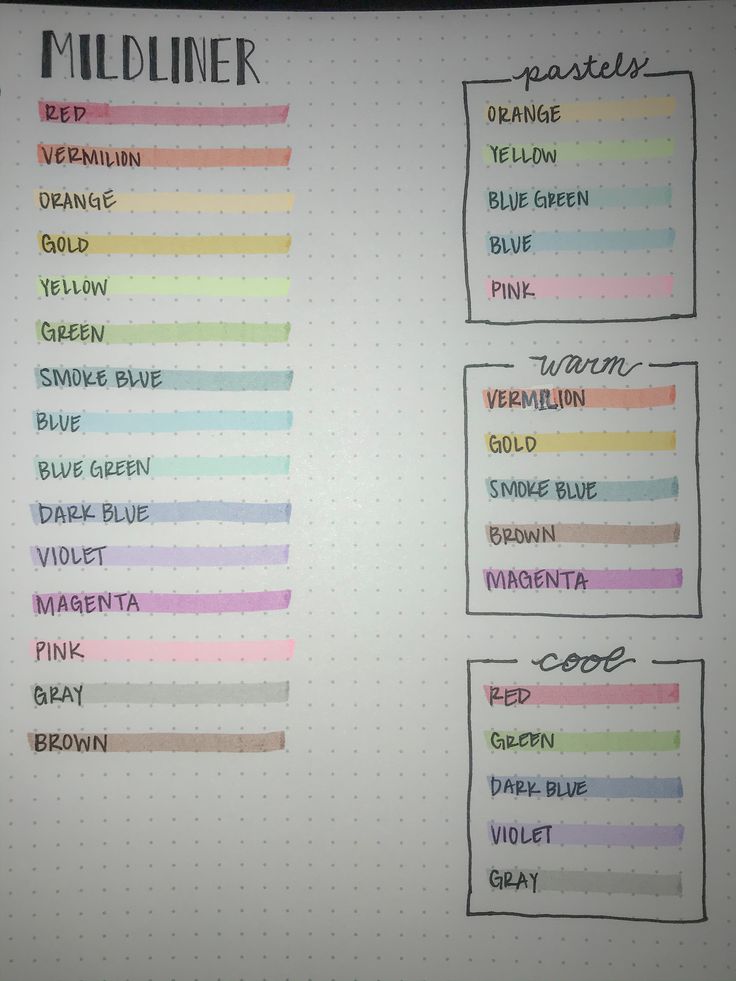 MILDLINER
RED
VERMILION
ORANGE
GOLD
YELLOW
GREEN
SMOKE BLUE
BLUE
BLUE GREEN
DARK BLUE
VIOLET
MAGENTA
PINK
GRAY
BROWN
pastels
ORANGE
YELLOW
BLUE GREEN
BLUE
PINK
warm
VERMILION
GOLD
SMOKE BLUE
BROWN
MAGENTA
cool
RED
GREEN
DARK BLUE
VIOLET
GRAY